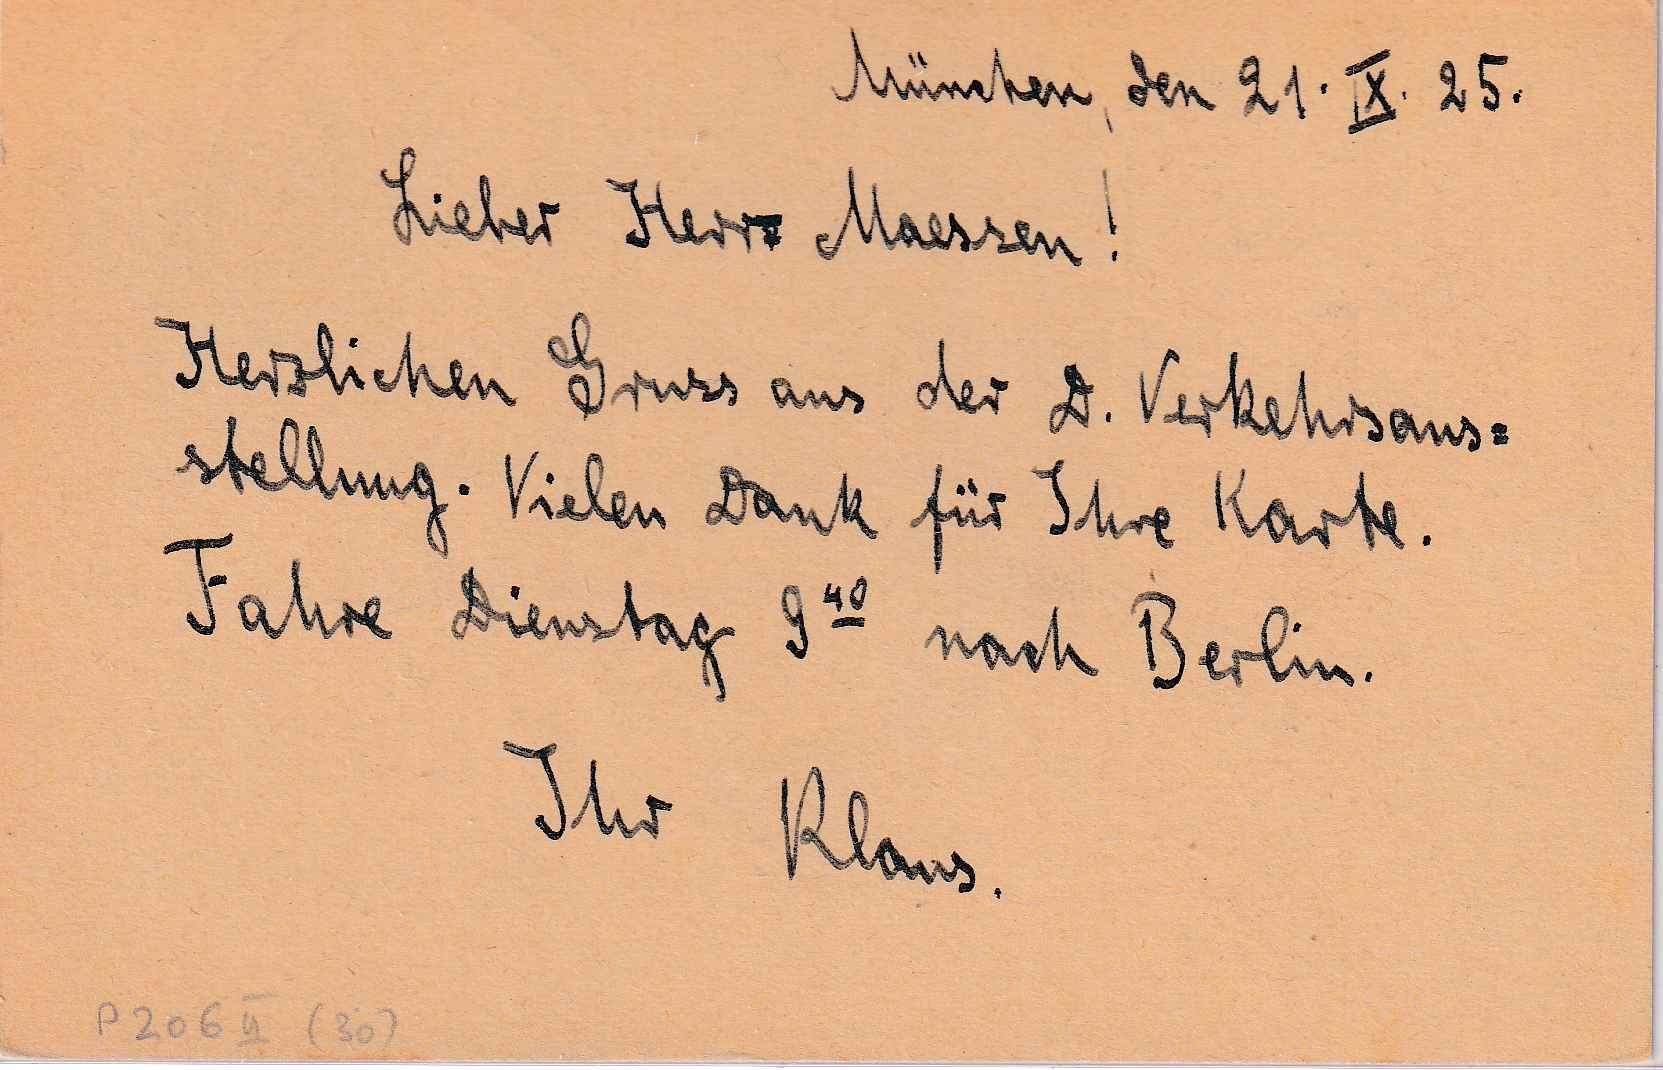 München, den 21. IX. 25.
Lieber Herr Maessen!
Herzlichen Gruss aus der D. Verkehrsaus=
stellung. Vielen Dank für Ihre Karte.
Fahre Dienstag 9 40 nach Berlin.
Ihr Klaus.
P 206 II (30)